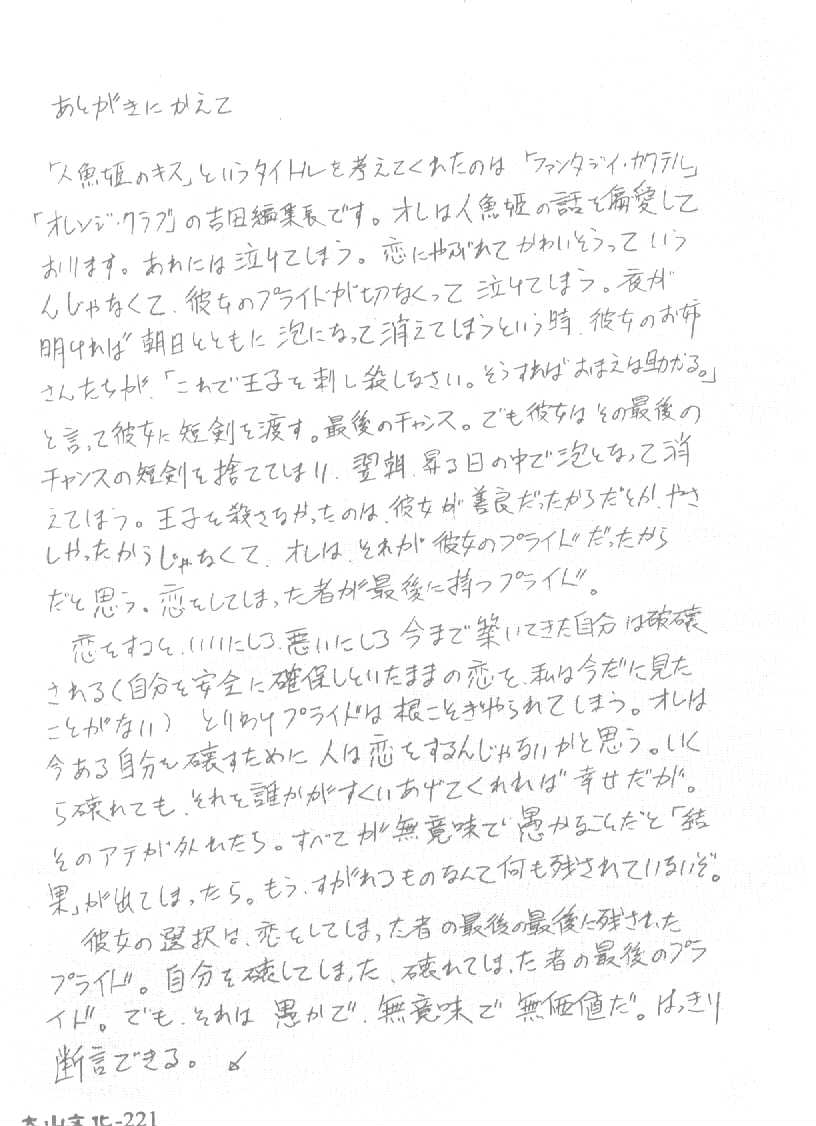 あとがきにかえて
「人魚姫のキス」というタイトルを考えてくれたのは「ファンタジィ・カクテル」
「オレンジ・クラブ」の吉田編集長です。オレは人魚姫の話を偏愛して
おります。あれには泣けてしまう。恋にやぶれてかわいそうっていう
んじゃなくて、彼女のプライドが切なくって泣けてしまう。夜が
明ければ朝日とともに泡になって消えてしまうという時、彼女のお姉
さんたちが、「これで王子を刺し殺しなさい。そうすればおまえは助かる。」
と言って彼女に短剣を渡す。最後のチャンス。でも彼女はその最後の
チャンスの短剣を捨ててしまい、翌朝、昇る日の中で泡となって消
えてしまう。王子を殺さなかったのは、彼女が善良だったからだとか、やさ
しかったからじゃなくて、オレは、それが彼女のプライドだったから
だと思う。恋をしてしまった者が最後に持つプライド。
恋をすると、いいにしろ、悪いにしろ今まで築いてきた自分は破壊
される(自分を安全に確保しといたままの恋を、私は今だに見た
ことがない) とりわけプライドは根こそぎやられてしまう。オレは
今ある自分を壊すために人は恋をするんじゃないかと思う。いく
ら壊れても、それを誰かがすくいあげてくれれば幸せだが。
そのアテが外れたら。すべてが無意味で愚かなことだと「結
果」が出てしまったら。もう、すがれるものなんて何も残されていないぞ。
彼女の選択は、恋をしてしまった者の最後の最後に残された
プライド。自分を壊してしまった、壊れてしまった者の最後のプラ
イド。でも、それは愚かで、無意味で無価値だ。はっきり
断言できる。
-221